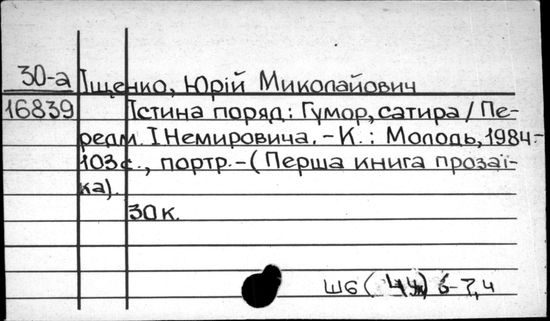 30-а Іщенко, Юрій Миколайович
16839 Істина поряд: Гумор, сатира / Пе-
редм. І Немировича. - К.: Молодь, 1984.-
103с., портр. - ( Перша книга прозаї-
ка).
30 к.
Ш6 ( 4У) 6-7,4